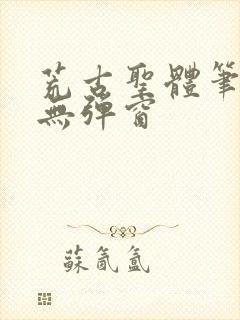 荒古聖體筆
無彈窗
蘇氤氳